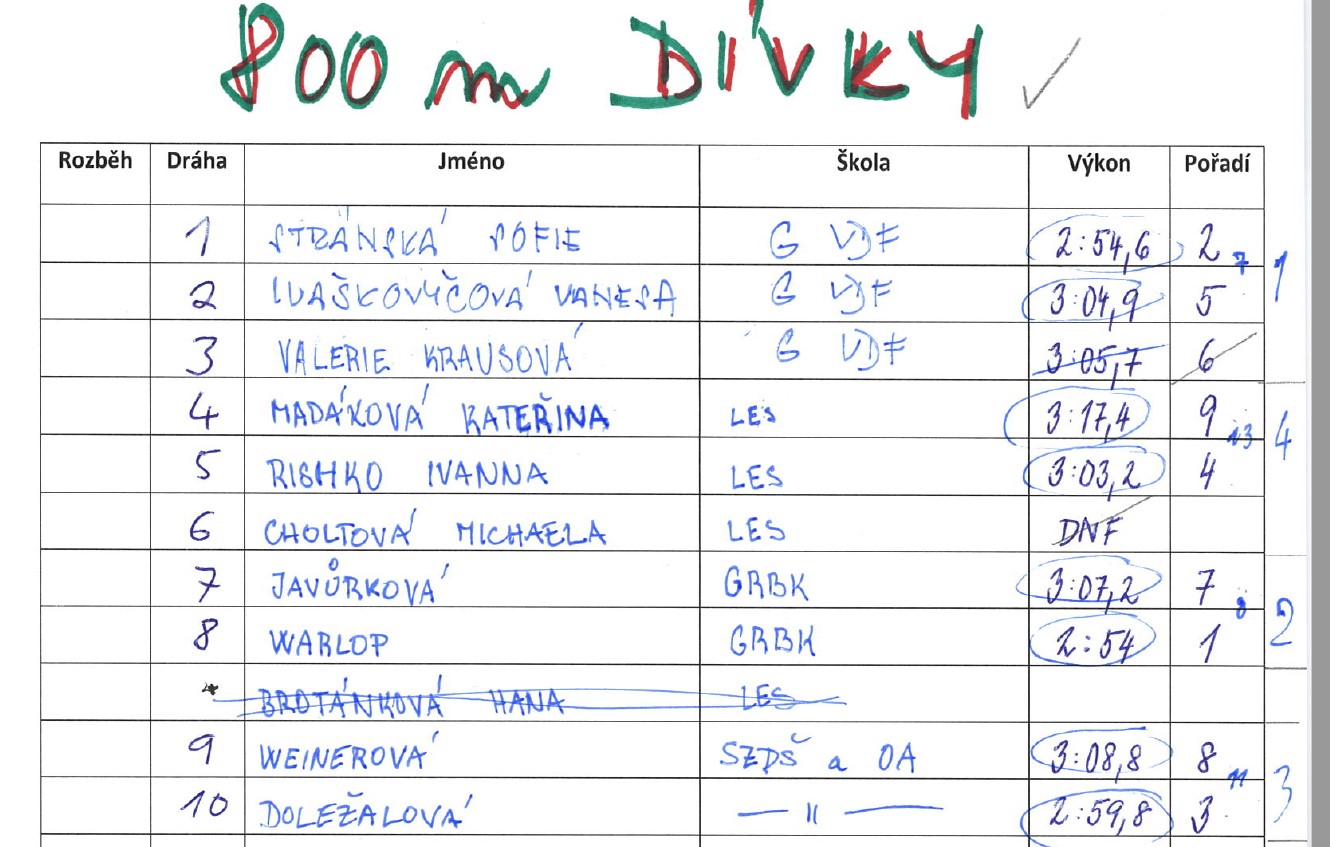 800 m DÍVKY ✓
Rozběh Dráha Jméno Škola Výkon Pořadí
1 STRÁNSKÁ SOFIE G VDF 2:54,6 2
7 1
2 IVAŠKOVYČOVÁ VANESA G VDF 3:04,9 5
3 VALERIE KRAUSOVÁ G VDF 3:05,7 6
4 MADÁKOVÁ KATEŘINA LES 3:17,4 9
13 4
5 RISHKO IVANNA LES 3:03,2 4
6 CHOLTOVÁ MICHAELA LES DNF
7 JAVŮRKOVÁ GRBK 3:07,2 7
8 2
8 WARLOP GRBK 2:54 1
BROTÁNKOVÁ HANA LES
9 WEINEROVÁ SZDŠ a OA 3:08,8 8
11 3
10 DOLEŽALOVÁ — 11 — 2:59,8 3